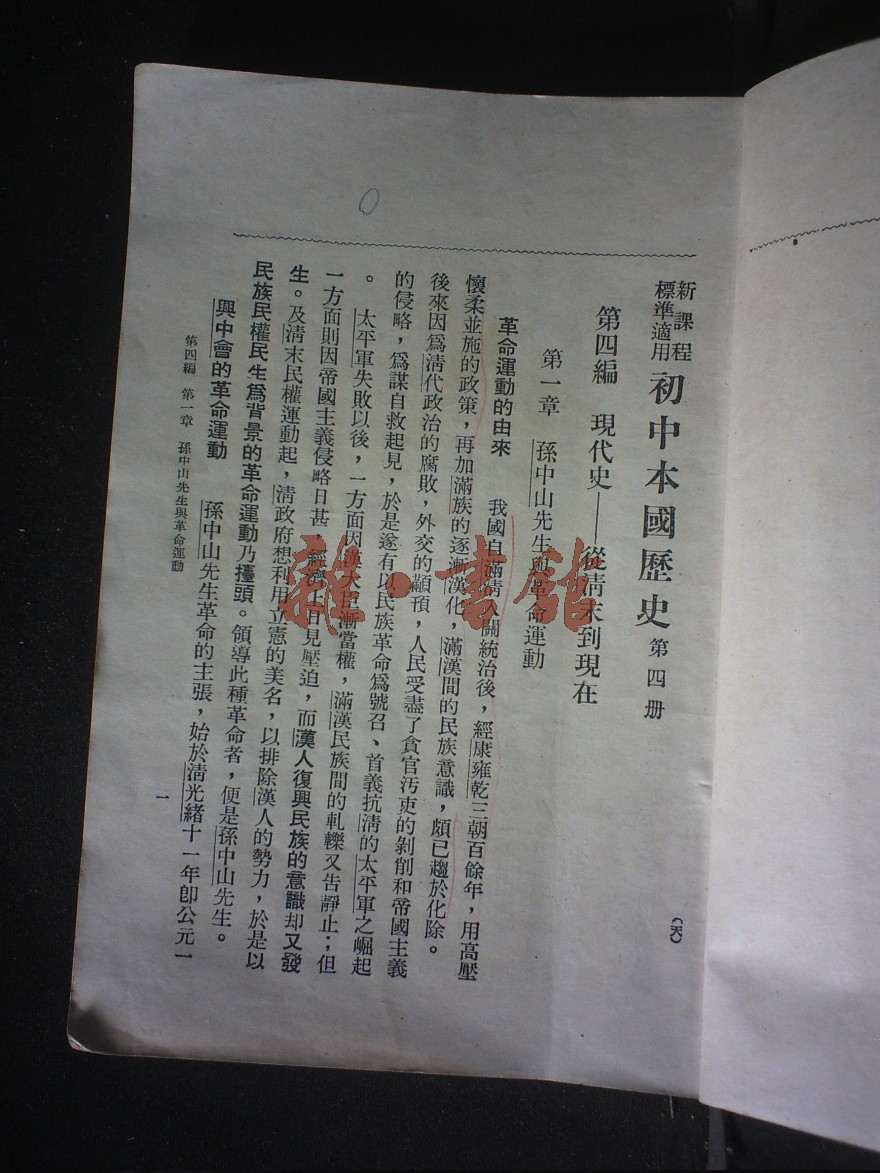 新課程
標準適用
初中本國歷史 第四册
(天)
第四編 現代史——從清末到現在
第一章 孫中山先生與革命運動
革命運動的由來 我國自滿清入關統治後，經康雍乾三朝百餘年，用高壓
懷柔並施的政策，再加滿族的逐漸漢化，滿漢間的民族意識，頗已趨於化除。
後來因爲清代政治的腐敗，外交的顢頇，人民受盡了貪官汚吏的剝削和帝國主義
的侵略，爲謀自救起見，於是遂有以民族革命爲號召、首義抗清的太平軍之崛起
。太平軍失敗以後，一方面因漢大臣漸當權，滿漢民族間的軋轢又告靜止；但
一方面則因帝國主義侵略日甚 經濟上日見壓迫，而漢人復興民族的意識却又發
生。及清末民權運動起，清政府想利用立憲的美名，以排除漢人的勢力，於是以
民族民權民生爲背景的革命運動乃擡頭。領導此種革命者，便是孫中山先生。
興中會的革命運動 孫中山先生革命的主張，始於清光緒十一年卽公元一
第四編 第一章 孫中山先生與革命運動
一
雜·書館